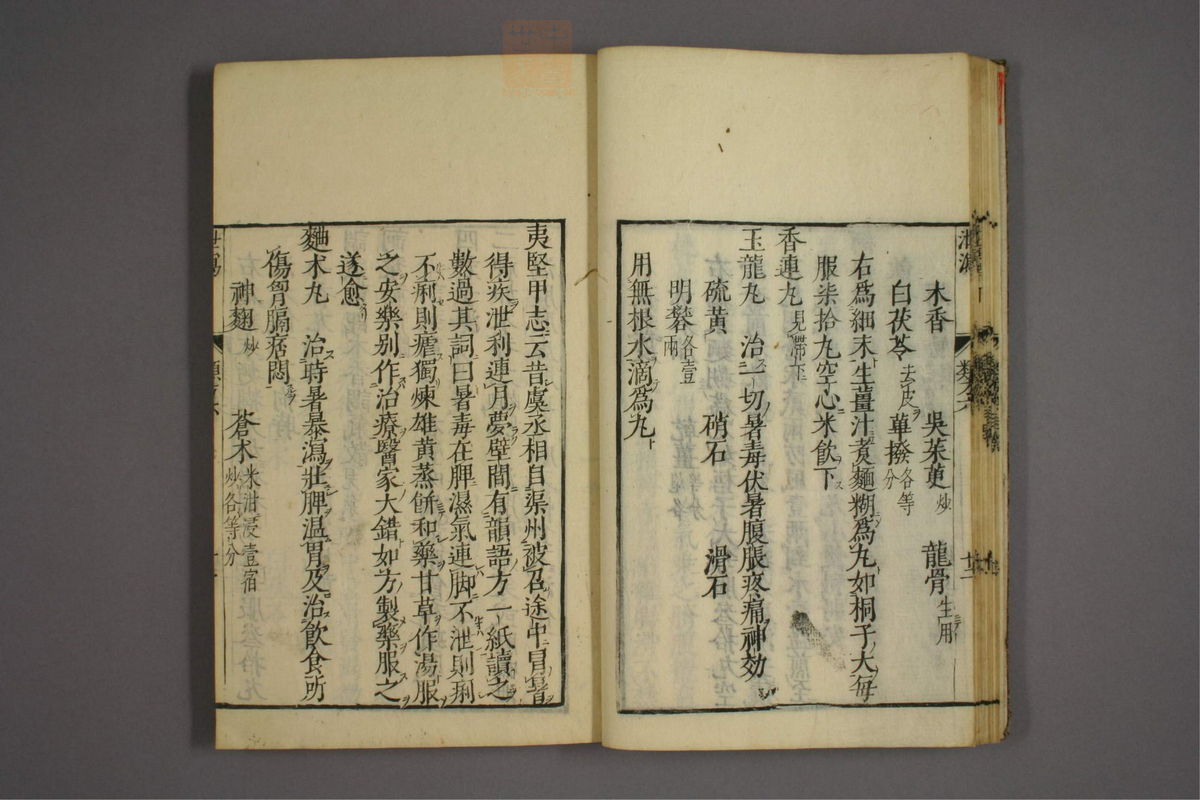 木香 吳茱萸炒 龍骨生用
白茯苓去皮 蓽撥各等分
右爲細末生薑汁煑麵糊爲丸如桐子大每
服柒拾丸空心米飮下
香連丸見滯下
玉龍丸 治一切暑毒伏暑腹脹疼痛神効
硫黃 硝石 滑石
明礬各壹兩
用無根水滴爲丸
夷堅甲志云昔虞丞相自渠州被召途中冒暑
得疾泄利連月夢壁間有韻語方一紙讀之
數過其詞曰暑毒在脾濕氣連脚不泄則痢
不痢則瘧獨煉雄黃蒸餅和藥甘草作湯服
之安樂別作治療醫家大錯如方製藥服之
遂愈
麯朮丸 治時暑暴瀉壯脾温胃及治飮食所
傷胷膈痞悶
神麯炒 蒼朮米泔浸壹宿炒各等分